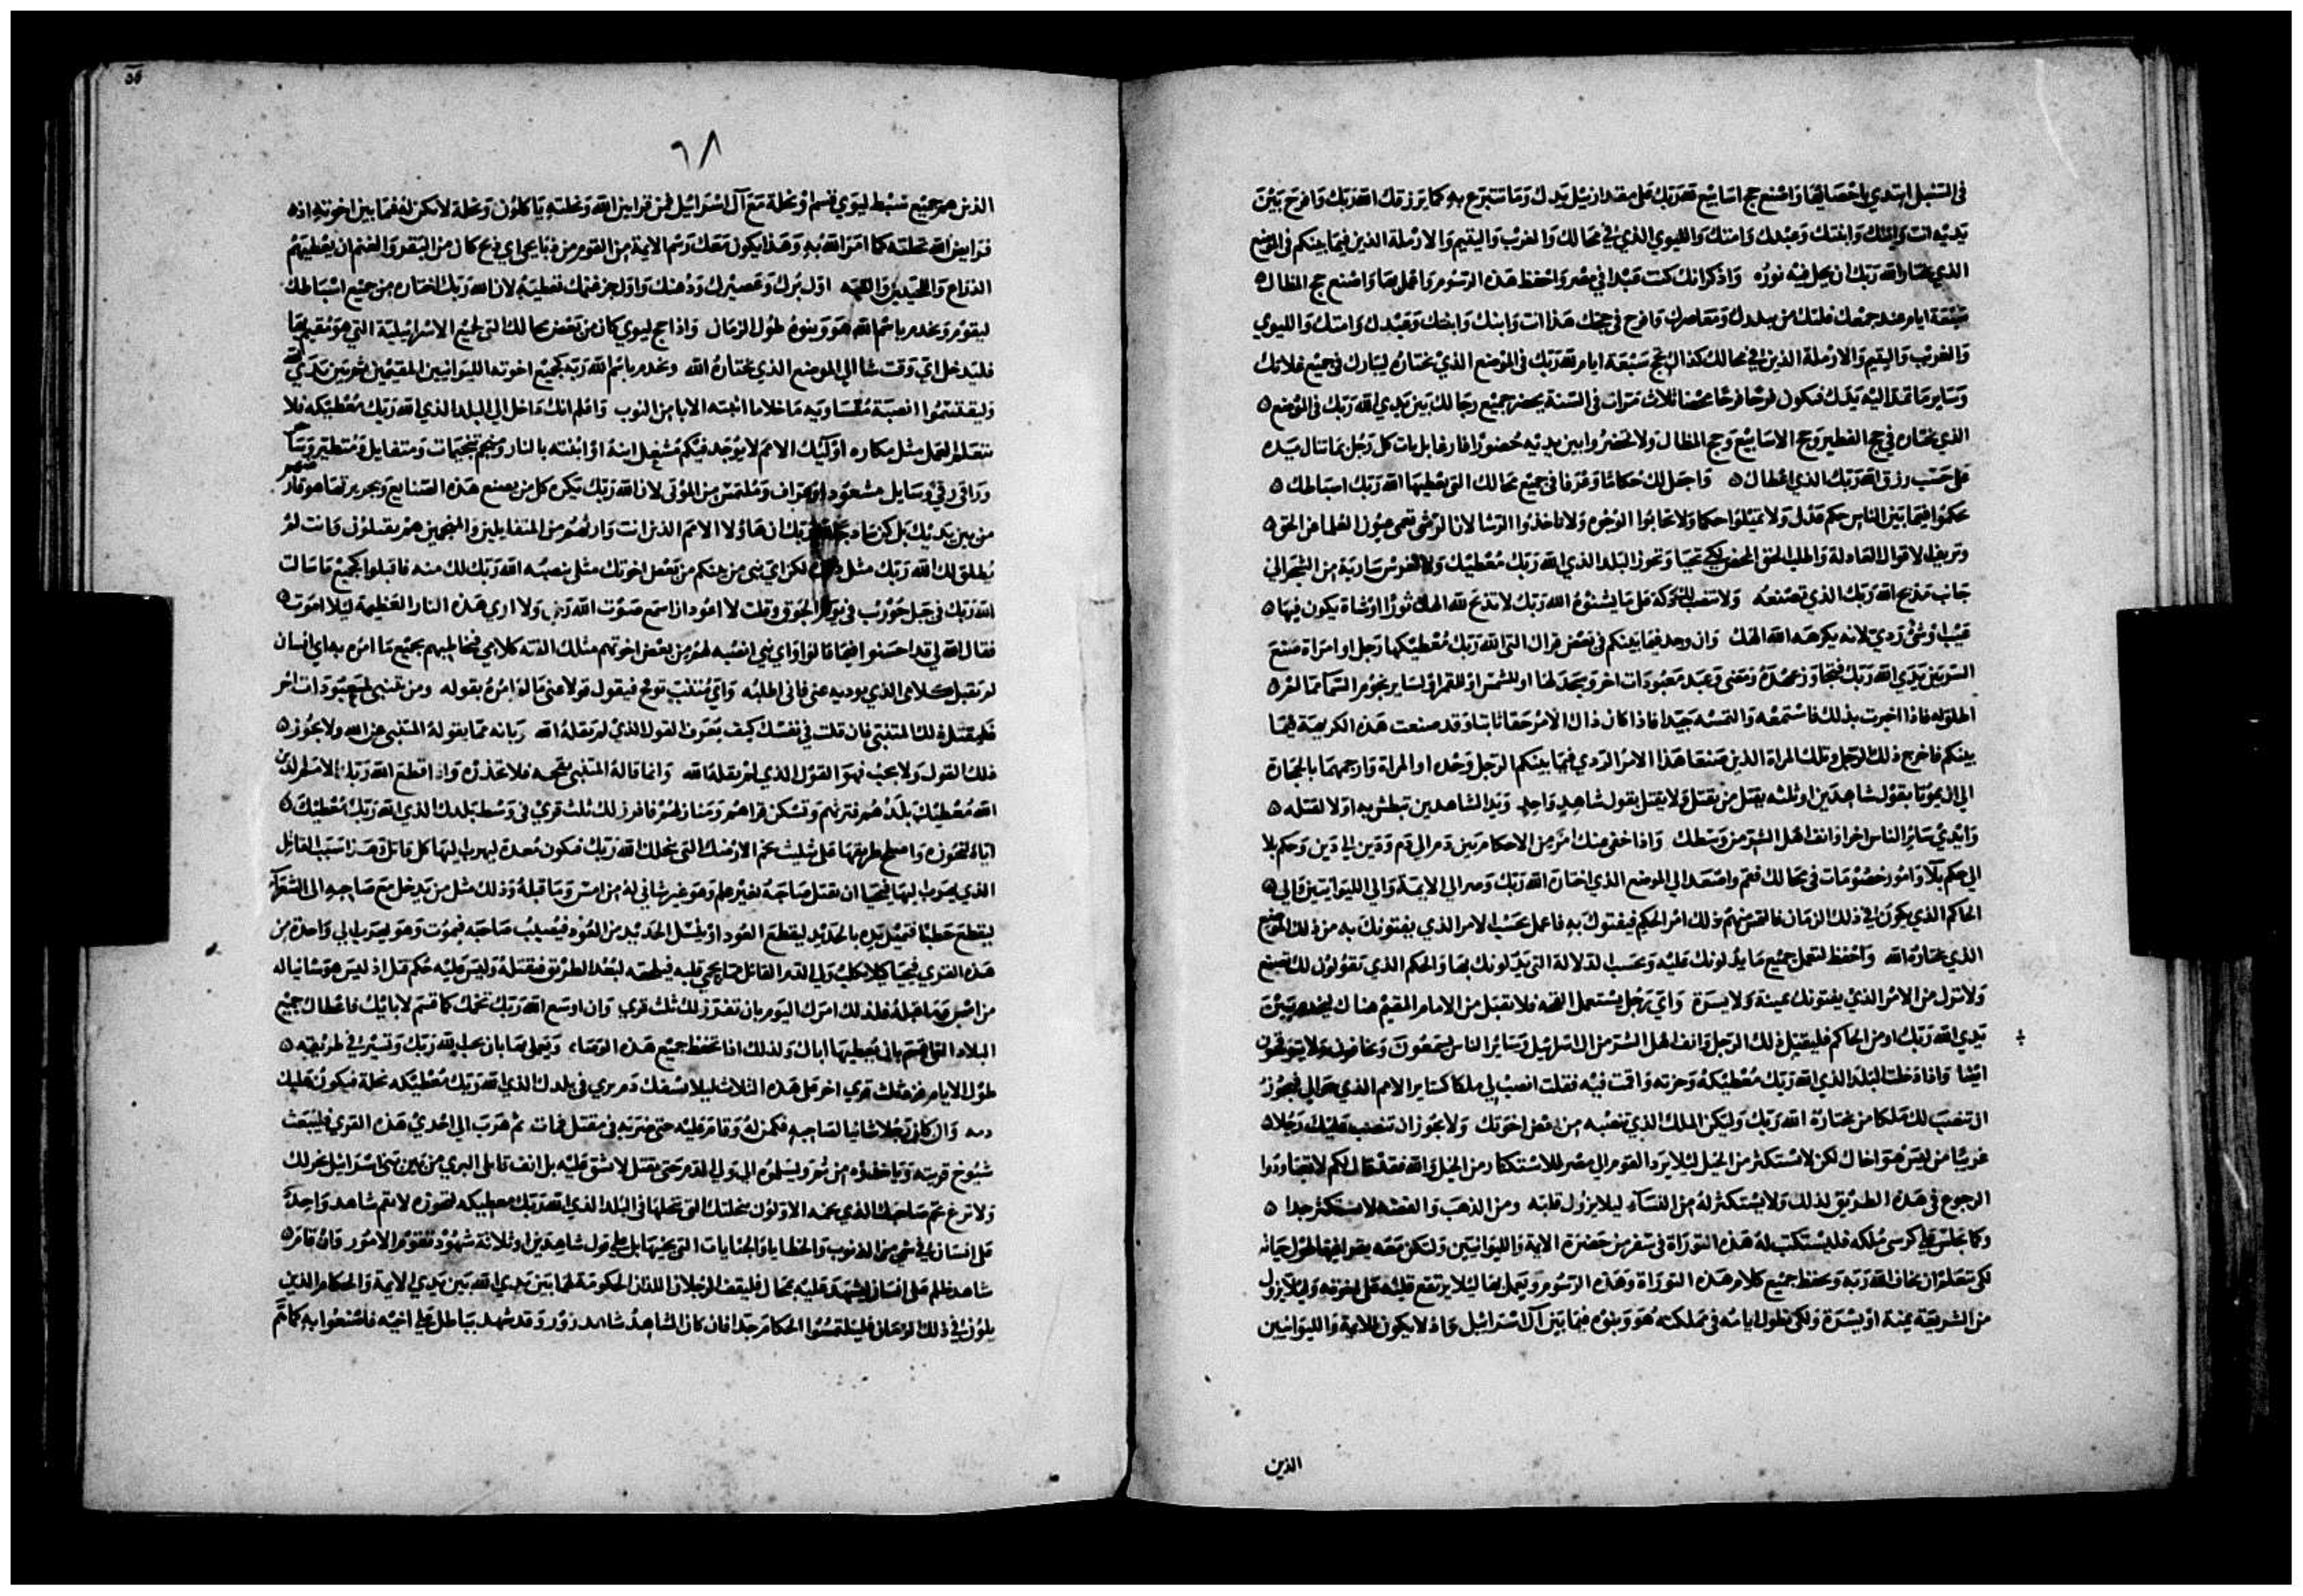 في السنبل ابتدي باحصائها واصنع حج اسابيع لله ربك على مقدار نيل يدك وما تتبرع به كما يرزقك الله ربك وافرح بين
يديه انت وابنك وابنتك وعبدك وامتك والليوي الذي في محالك والغريب واليتيم والارملة الذين فيما بينكم في الموضع
الذي يختاره الله ربك ان يحل فيه نوره واذكر انك كنت عبدا في مصر واحفظ هذه الرسوم واعمل بها واصنع حج المظال
سبعة ايام عند جمعك غلتك من بيدرك ومعاصرك وافرح في حجك هذا انت وابنك وابنتك وعبدك وامتك والليوي
والغريب واليتيم والارملة الذين في محالك كذاك تحج سبعة ايام لله ربك في الموضع الذي يختاره ليبارك في جميع غلاتك
وساير ما تمد اليه يدك فتكون فرحا فرحا محضا ثلاث مرات في السنة يحضر جميع رجالك بين يدي الله ربك في الموضع
الذي يختاره في حج الفطير وحج الاسابيع وحج المظال ولا تحضروا بين يديه حضورا فارغا بل يات كل رجل بما تنال يده
على حسب رزق الله ربك الذي اعطاك واجعل لك حكاما وعرفا في جميع محالك التي يعطيها الله ربك اسباطك
يحكموا فيما بين الناس حكم عدل ولا تميلوا حكما ولا تحابوا الوجوه ولا تاخذوا الرشا لان الرشى تعمي عيون العلما عن الحق
وتزيف الاقوال العادلة واطلب الحق المحض لكي تحيا وتحوز البلد الذي الله ربك معطيك ولا تغرس سارية من الشجر الى
جانب مذبح الله ربك الذي تصنعه ولا تنصب لك دكة على ما يشنؤه الله ربك لا تذبح لله الهك ثورا او شاة يكون فيها
عيب او شي ردي لانه يكرهه الله الهك وان وجد فيما بينكم في بعض قراك التي الله ربك معطيكها رجل او امراة صنع
الشر بين يدي الله ربك فتجاوز عهده ومضى وعبد معبودات اخر وسجد لها او للشمس او للقمر او لساير نجوم السما مما لم
اطلقه فاذا اخبرت بذلك فاستمعه والتمسه جيدا فاذا كان ذاك الامر حقا ثابتا وقد صنعت هذه الكريهة فيما
بينكم فاخرج ذلك الرجل وتلك المراة الذين صنعا هذا الامر الردي فيما بينكم الرجل وحده او المراة وارجمهما بالحجارة
الى ان يموتا بقول شاهدين او ثلثه يقتل من يقتل ولا يقتل بقول شاهد واحد ويد الشاهدين تبطش به اولا لقتله
وايدي ساير الناس اخرا وانف اهل الشر من وسطك واذا خفي منك امر من الاحكام بين دم الى دم ودين الى دين وحكم بلا
الى حكم بلا وامور خصومات في محالك فقم واصعد الى الموضع الذي اختاره الله ربك وصر الى الايمة والى الليوانيين والى
الحاكم الذي يكون في ذلك الزمان فالتمس منهم ذلك امر الحكم فيفتوك به فاعمل بحسب الامر الذي يفتونك به من ذلك الموضع
الذي يختاره الله واحفظ لتعمل جميع ما يدلونك عليه وبحسب الدلالة التي يدلونك بها والحكم الذي يقولون لك تصنع
ولا تزل عن الامر الذي يفتونك يمينة ولا يسرة واي رجل يستعمل القحه فلا يقبل من الامام المقيم هناك ليخدم بين
يدي الله ربك او من الحاكم فليقتل ذلك الرجل وانف اهل الشر من ال اسرائيل وساير الناس يسمعون ويخافون ولا يتوقحون
ايضا واذا دخلت البلد الذي الله ربك معطيكه وحزته واقمت فيه فقلت انصب لي ملكا كساير الامم الذي حوالي فيجوز
ان تنصب لك ملكا من يختاره الله ربك وليكن الملك الذي تنصبه من بعض اخوتك ولا يجوز ان تنصب عليك رجلا
غريبا من ليس هو اخاك لكن لا يستكثر من الخيل ليلا يرد القوم الى مصر للاستكثار من الخيل والله فقد قال لكم لا تعاودوا
الرجوع في هذه الطريق لذلك ولا يستكثر له من النساء ليلا يزول قلبه ومن الذهب والفضه لا يستكثر جدا
وكما يجلس على كرسي ملكه فليستكتب له هذه التوراة في سفر من حضرة الايمة والليوانيين ولتكن معه يقرا فيها طول حياته
لكي تعلم ان يخاف الله ربه ويحفظ جميع كلام هذه التوراة وهذه الرسوم ويعمل بها ليلا يرتفع قلبه على اخوته وليلا يزول
من الشريعة يمنة او يسرة ولكي تطول ايامه في مملكته هو وبنوه فيما بين آل اسرائيل واذ لا يكون للايمة والليوانيين
الذين
٦٨
الذين هم جميع سبط ليوي قسم او نحلة مع آل اسرائيل فمن قرابين الله ونحلته ياكلون ونحلة لا تكن له فيما بين اخوته اذ
قرابين الله نحلته كما امر الله به وهذا يكون معك رسم الايمة من القوم من ذبايحهم اي ذبح كان من البقر والغنم ان يعطيهم
الذراع واللحيين والقبه اول برك وعصيرك ودهنك واول جز غنمك تعطيه لان الله ربك اختاره من جميع اسباطك
ليقوم ويخدم باسم الله هو وبنوه طول الزمان واذا جا ليوي كان من بعض محالك التي لجميع الاسرائيلية التي هو مقيم بها
فليدخل اي وقت شا الى الموضع الذي يختاره الله ويخدم باسم الله ربه كجميع اخوته الليوانيين المقيمين ثم بين يدي الله
وليقتسموا انصبة متساويه ما خلا ما اثبته الابا من النوب واعلم انك داخل الى البلد الذي الله ربك معطيكه فلا
تتعلم لتعمل مثل مكاره اولئك الامم لا يوجد فيكم مشعل ابنه او ابنته بالنار ومنجم تنجيمات ومتفايل ومتطير وساحر
وراقي رقي وسايل مشعوذ او عراف وملتمس من الموتى لان الله ربك يكره كل من يصنع هذه الصنايع وبجريرتها هو قارضهم
من بين يديك بل كن ساذجا مع الله ربك ان هاولا الامم الذين انت وارثهم من المتفايلين والمنجمين هم يقبلون وانت لم
يطلق لك الله ربك مثل ذلك لكن اي نبي من بينكم من بعض اخوتك مثلي ينصبه الله ربك لك منه فاقبلوا كجميع ما سالت
الله ربك في جبل حوريب في يوم الجوق وقلت لا اعود ان اسمع صوت الله ربي ولا ارى هذه النار العظيمة ليلا اموت
فقال الله لي قد احسنوا فيما قالوا واي نبي انصبه لهم من بعض اخوتهم مثلك القنه كلامي فخاطبهم بجميع ما امره به اي انسان
لم يقبل كلامي الذي يوديه عني فاني اطلبه واي متنبي توقح فيقول قولا عني ما لم امره بقوله ومن تنبى لمعبودات اخر
فليقتل ذلك المتنبي فان قلت في نفسك كيف يعرف القول الذي لم يقله الله ربانه مما يقوله المتنبي عن الله ولا يجوز
ذلك القول ولا يجب فهو القول الذي لم يقله الله وانما قاله المتنبي بقحه فلا تحذره واذا قطع الله ربك الامم الذين
الله معطيك بلدهم فترثهم وتسكن قراهم ومنازلهم فافرز لك ثلث قرى في وسط بلدك الذي الله ربك معطيك
اياه لتحوزه واصلح طريقها على تثليث تخم الارضك التي ينحلك الله ربك فتكون معدة ليهرب اليها كل قاتل وهذا سبب القاتل
الذي يهرب اليها فيحيا ان يقتل صاحبه بغير علم وهو غير شاني له من امس وما قبله وذلك مثل من يدخل مع صاحبه الى الشعرا
ليقطع حطبا فتميل يده بالحديد ليقطع العود او ينسل الحديد من العود فيصيب صاحبه فيموت وهو يهرب الى واحدة من
هذه القرى فيحيا كيلا يكلب ولي الدم القاتل لما يحمي قلبه فيلحقه لبعد الطريق فيقتله وليس عليه حكم قتل اذ ليس هو شانيا له
من امس وما قبله فلذلك امرك اليوم بان تفرز لك ثلث قرى وان اوسع الله ربك تخمك كما قسم لابائك فاعطاك جميع
البلاد التي قسم بان يعطيها اباك ولذلك اذا تحفظ جميع هذه الوصاء، وتعمل بها بان تحب الله ربك وتسير في طريقه
طول الايام فزد ثلث قرى اخر على هذه الثلاث ليلا يسفك دم بري في بلدك الذي الله ربك معطيكه نحلة فيكون عليك
دمه وان كان رجلا شانيا لصاحبه فكمن له وقام عليه حتى ضربه في مقتل فمات ثم هرب الى احدى هذه القرى فليبعث
شيوخ قريته وياخذوه من ثم ويسلموه الى ولي الدم حتى يقتل لا تشفق عليه بل انف قاتل البري من بين بني اسرائيل يخر لك
ولا تزغ تخم صاحبك الذي تخمه الاولون بنحلتك التي تنحلها في البلد الذي الله ربك معطيكه لتحوزه لا تقم شاهد واحد
على انسان في شي من الذنوب والخطايا والجنايات التي يجنيها بل على قول شاهدين او ثلاثة شهود تقوم الامور وان قام
شاهد ظلم على انسان ليشهد عليه بمحال فليقف الرجلان اللذان الحكومة لهما بين يدي الله بين يدي الايمة والحكام الذين
يلون في ذلك الزمان فليلتمسوا الحكام جدا فان كان الشاهد شاهد زور وقد شهد بباطل على اخيه فاصنعوا به كما هم